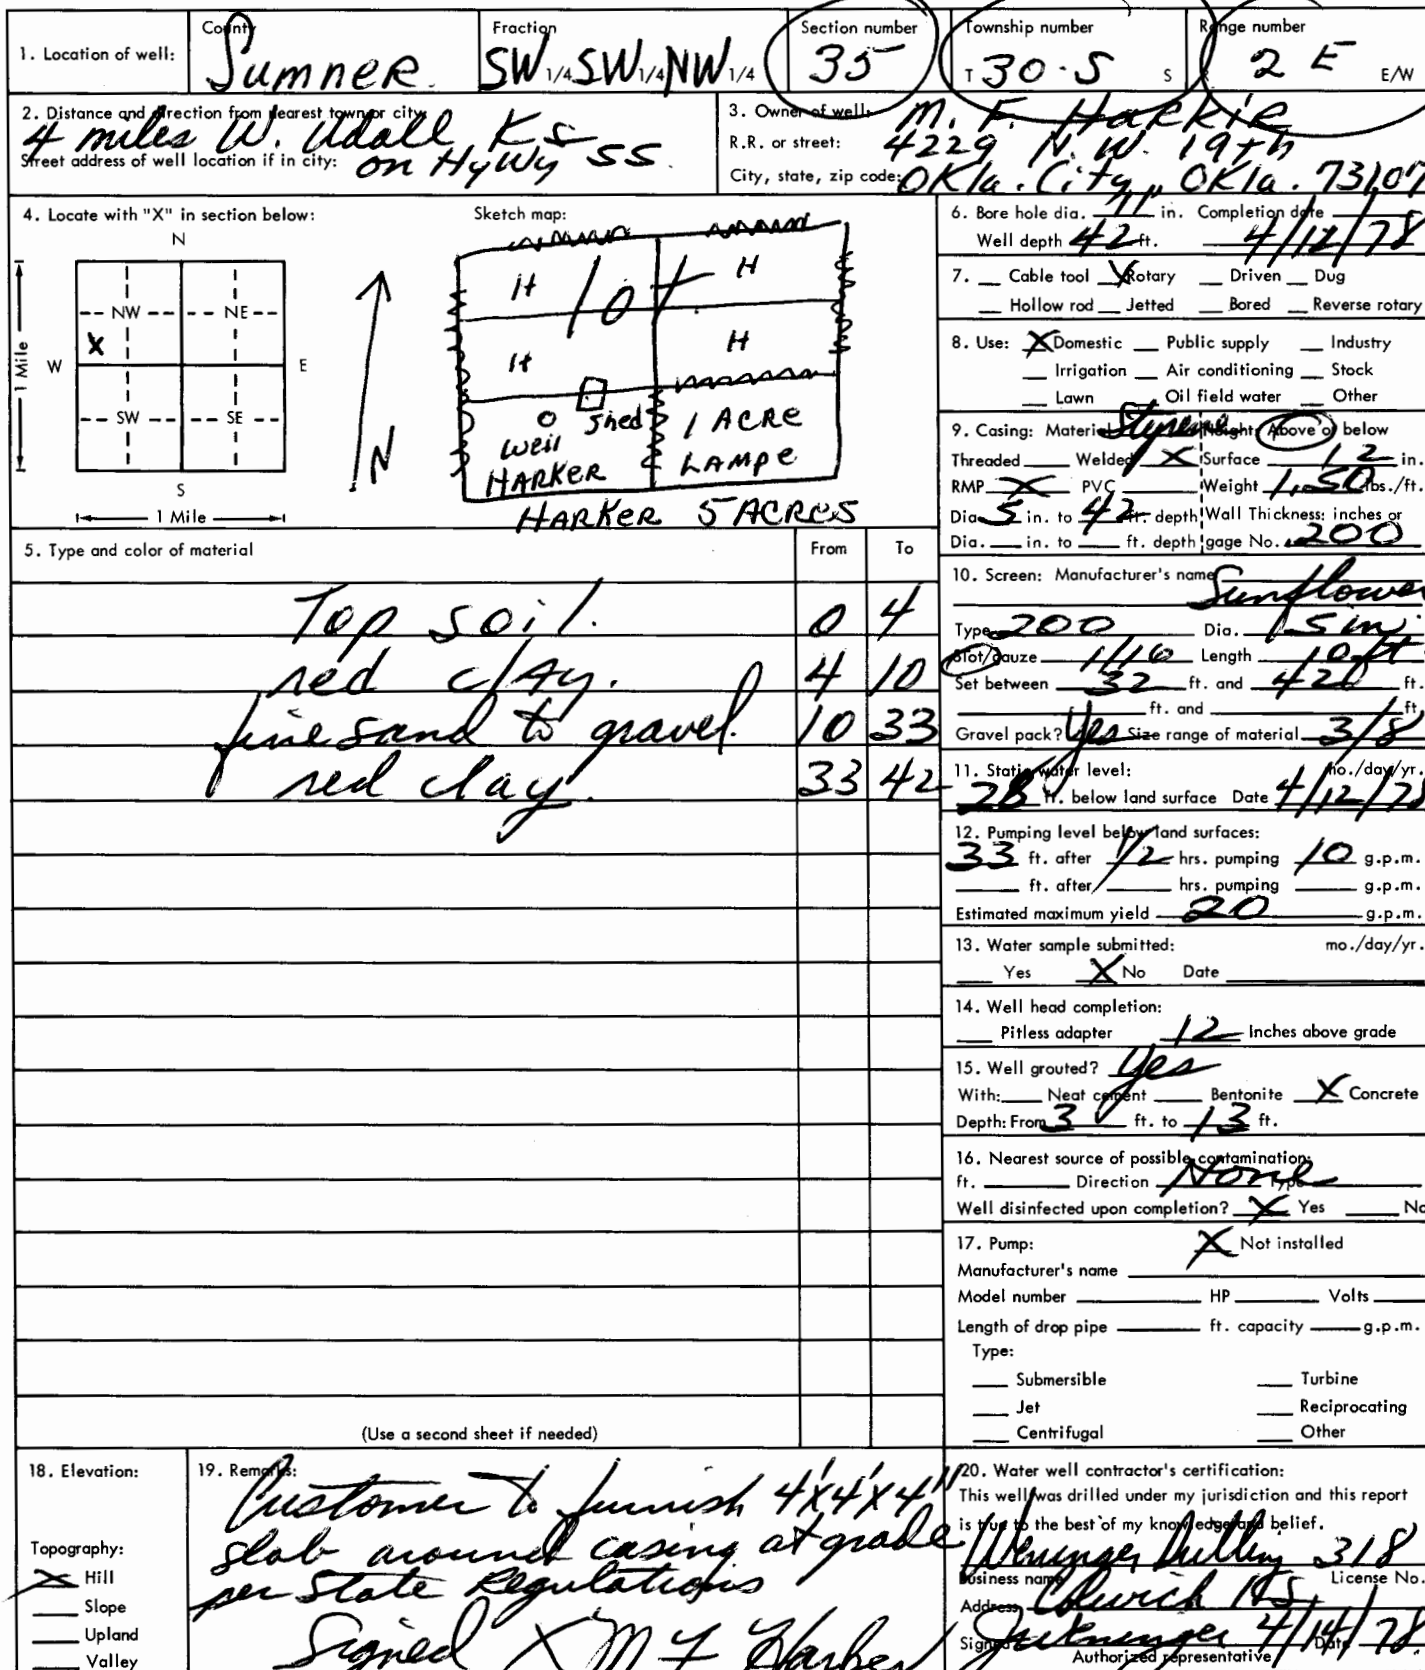 1. Location of well: County Sumner. Fraction SW 1/4 SW 1/4 NW 1/4 Section number 35 Township number T 30-S S Range number 2 E E/W
2. Distance and direction from nearest town or city:
4 miles W. Udall Ks
Street address of well location if in city: on HyWy 55.
3. Owner of well: M. F.
R.R. or street: 4229 N.W. 19th
City, state, zip code: OKla. City, OKla. 73107
4. Locate with "X" in section below:
N
NW NE
X
W E
SW SE
S
1 Mile
1 Mile
N
Sketch map:
H lot H
H H
shed
well
HARKER
1 ACRE
LAMPE
HARKER 5 ACRES
5. Type and color of material From To
Top soil. 0 4
red clay. 4 10
fine sand to gravel. 10 33
red clay. 33 42
(Use a second sheet if needed)
6. Bore hole dia. 11 in. Completion date
Well depth 42 ft. 4/12/78
7. Cable tool X Rotary Driven Dug
Hollow rod Jetted Bored Reverse rotary
8. Use: X Domestic Public supply Industry
Irrigation Air conditioning Stock
Lawn Oil field water Other
9. Casing: Material Styrene Height: Above or below
Threaded Welded X Surface 12 in.
RMP X PVC Weight 1.50 lbs./ft.
Dia. 5 in. to 42 ft. depth Wall Thickness: inches or
Dia. in. to ft. depth gage No. .200
10. Screen: Manufacturer's name
Sunflower
Type 200 Dia. 5 in.
Slot/gauze 1/16 Length 10 ft
Set between 32 ft. and 42 ft.
ft. and ft.
Gravel pack? Yes Size range of material 3/8
11. Static water level: mo./day/yr.
28 ft. below land surface Date 4/12/78
12. Pumping level below land surfaces:
33 ft. after 1/2 hrs. pumping 10 g.p.m.
ft. after hrs. pumping g.p.m.
Estimated maximum yield 20 g.p.m.
13. Water sample submitted: mo./day/yr.
Yes X No Date
14. Well head completion:
Pitless adapter 12 Inches above grade
15. Well grouted? yes
With: Neat cement Bentonite X Concrete
Depth: From 3 ft. to 13 ft.
16. Nearest source of possible contamination:
ft. Direction None Type
Well disinfected upon completion? X Yes No
17. Pump: X Not installed
Manufacturer's name
Model number HP Volts
Length of drop pipe ft. capacity g.p.m.
Type:
Submersible Turbine
Jet Reciprocating
Centrifugal Other
18. Elevation:
Topography:
X Hill
Slope
Upland
Valley
19. Remarks:
Customer to furnish 4'x4'x4"
slab around casing at grade
per State Regulations
Signed X M F Harker
20. Water well contractor's certification:
This well was drilled under my jurisdiction and this report
is true to the best of my knowledge and belief.
Weninger Drilling 318
Business name License No.
Address Colwich KS.
Signed Weninger 4/14/78 Date
Authorized representative